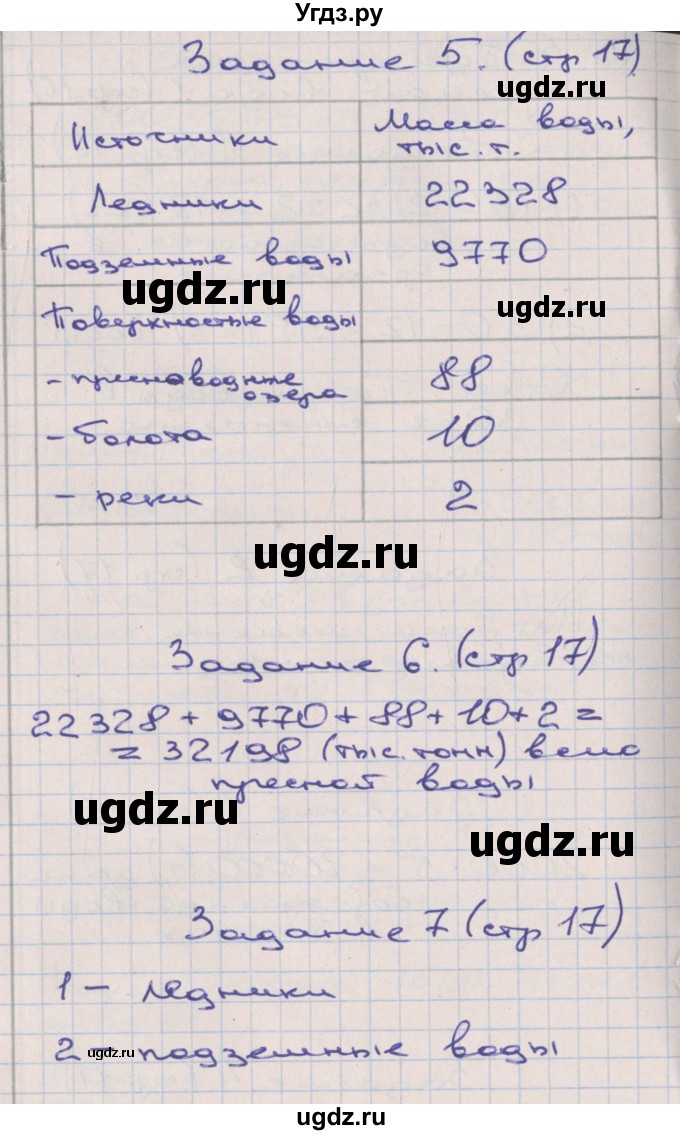 Угдз.ру
Задание 5. (стр 17)
ugdz.ru
Источники
Масса воды,
тыс. т.
Ледники 22328
Подземные воды 9770
ugdz.ru
ugdz.ru
Поверхностые воды
- пресноводные
озера 88
- болота 10
- реки 2
ugdz.ru
Задание 6. (стр 17)
22328 + 9770 + 88 + 10 + 2 =
= 32198 (тыс. тонн) всего
пресной воды
ugdz.ru
ugdz.ru
Задание 7 (стр 17)
1 - ледники
2 - подземные воды
ugdz.ru
ugdz.ru